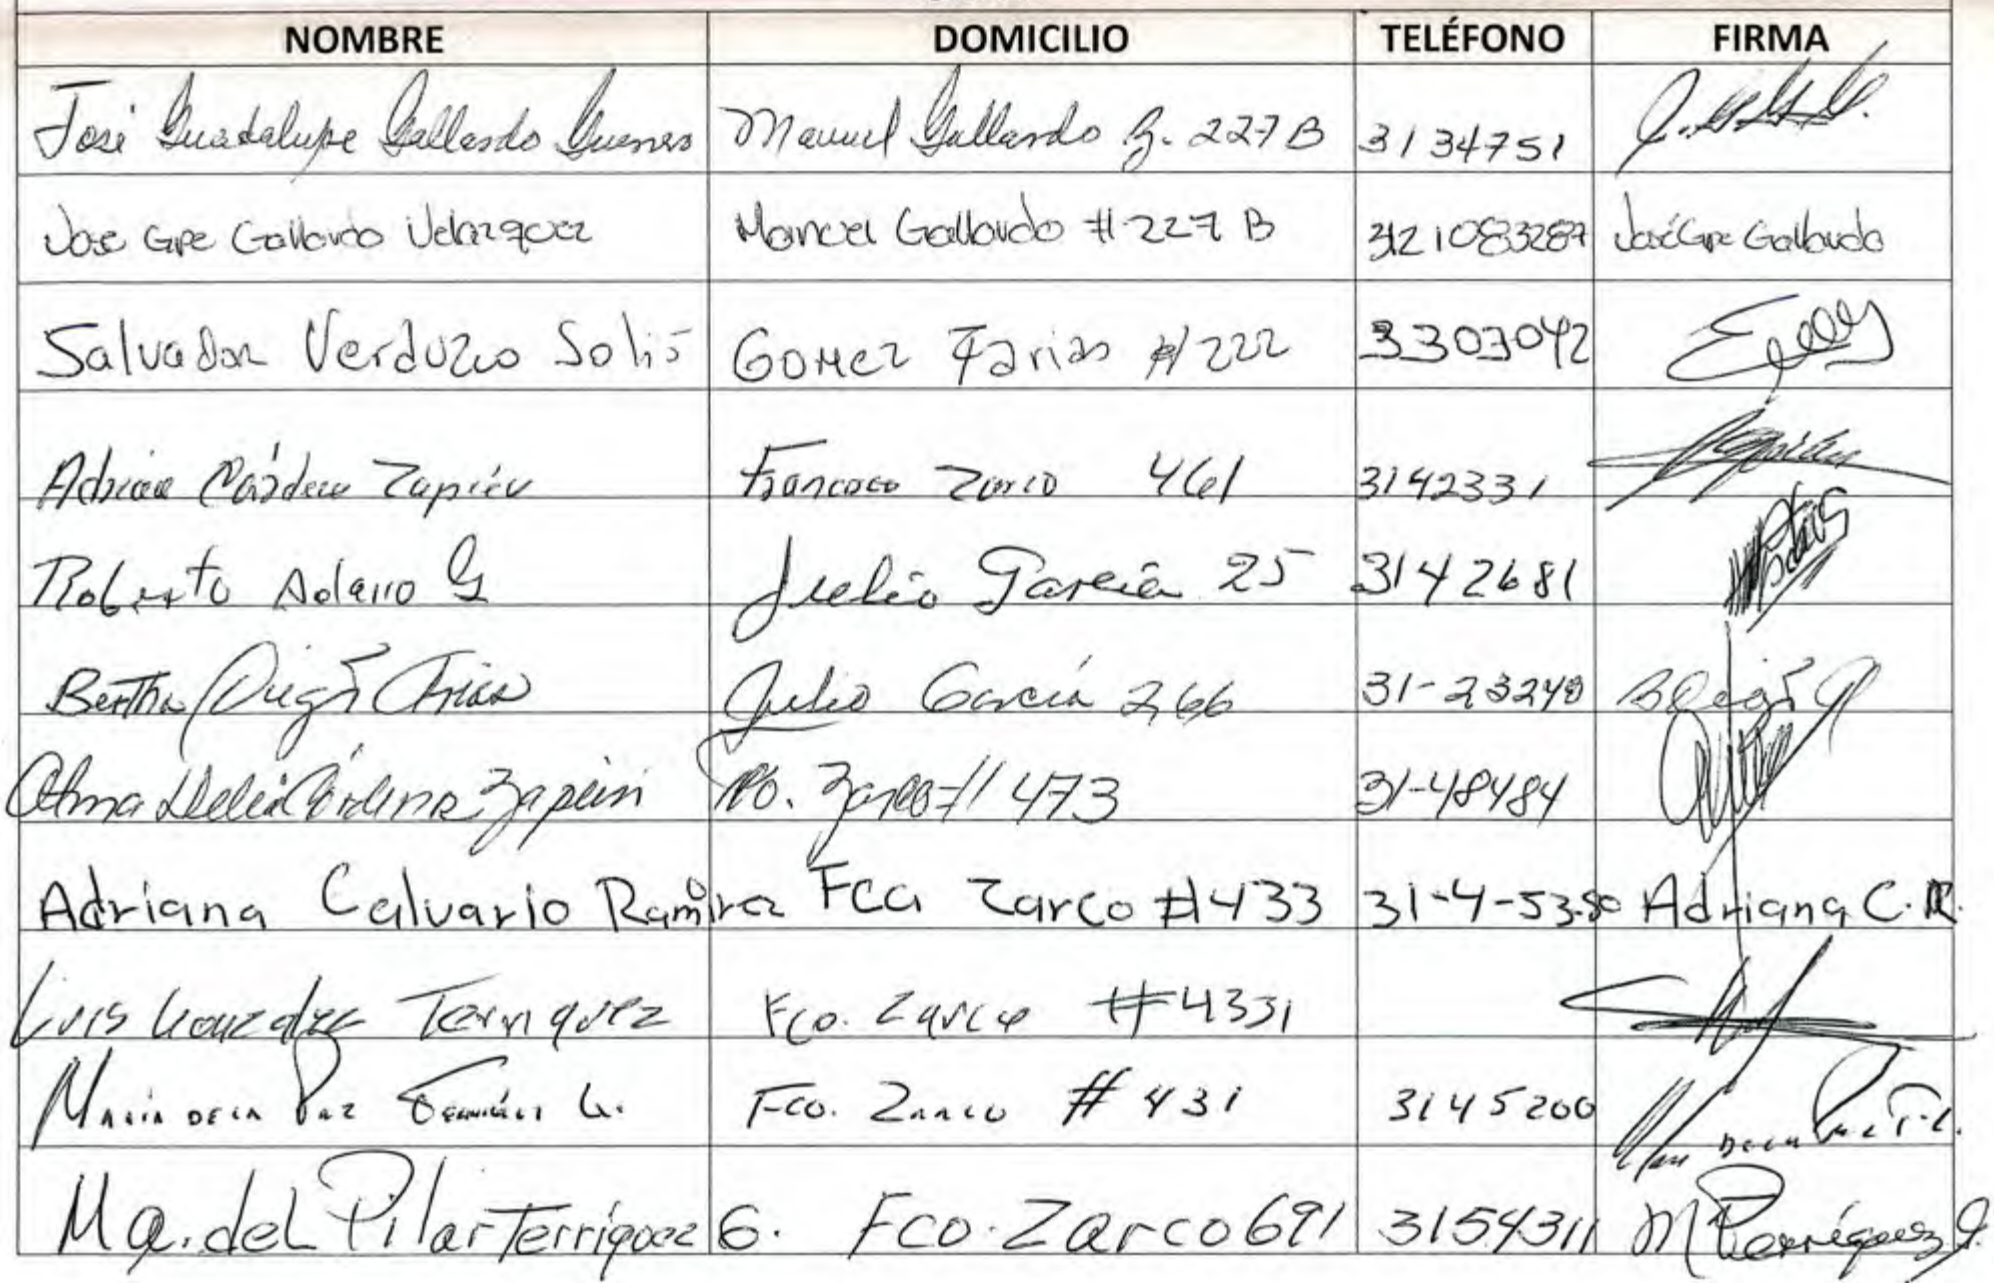 NOMBRE DOMICILIO TELÉFONO FIRMA
José Guadalupe Gallardo Manuel Gallardo Z. 227 B 3134751
Jose Gpe Gallardo Velazquez Manuel Gallardo # 227 B 3121083287 José Gpe Gallardo
Salvador Verduzco Solis Gomez Farias # 222 3303042
Zapién Francisco Zarco 461 3142331
Roberto Adame G Julio García 25 3142681
Bertha Arias Julio García 266 31-23248
Alma Delia Cárdenas Zapien Fco. Zarco # 473 31-48484
Adriana Calvario Ramirez Fca Zarco # 433 31-4-5380 Adriana C. R.
Luis Gonzalez Terriquez Fco. Zarco # 4331
María de la Paz G. Fco. Zarco # 431 3145200
Ma. del Pilar Terríquez G. Fco. Zarco 691 3154311 M P Terríquez G.